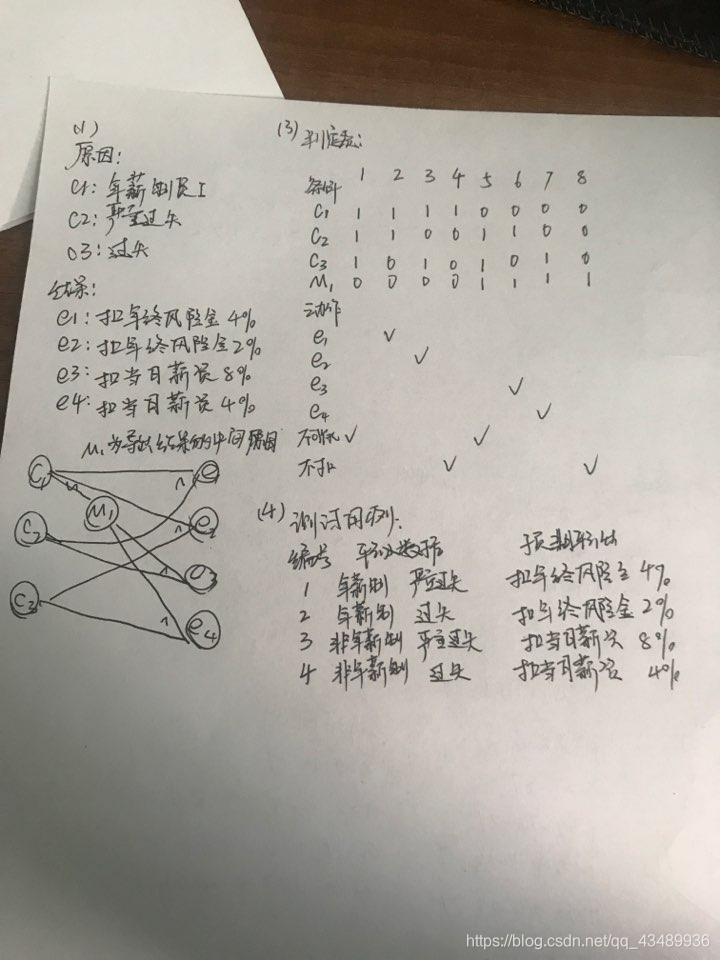 (1)
原因:
C1: 年薪制员工
C2: 严重过失
C3: 过失
结果:
e1: 扣年终风险金 4%
e2: 扣年终风险金 2%
e3: 扣当月薪资 8%
e4: 扣当月薪资 4%
M1为导致结果的中间原因
C1 e1
M1 e2
C2
e3
C3 e4
(3) 判定表:
条件 1 2 3 4 5 6 7 8
C1 1 1 1 1 0 0 0 0
C2 1 1 0 0 1 1 0 0
C3 1 0 1 0 1 0 1 0
M1 0 0 0 0 1 1 1 1
动作
e1 ✓
e2 ✓
e3 ✓
e4 ✓
不可能 ✓ ✓
不扣 ✓ ✓
(4) 测试用例:
编号 输入数据 预期输出
1 年薪制 严重过失 扣年终风险金 4%
2 年薪制 过失 扣年终风险金 2%
3 非年薪制 严重过失 扣当月薪资 8%
4 非年薪制 过失 扣当月薪资 4%
https://blog.csdn.net/qq_43489936